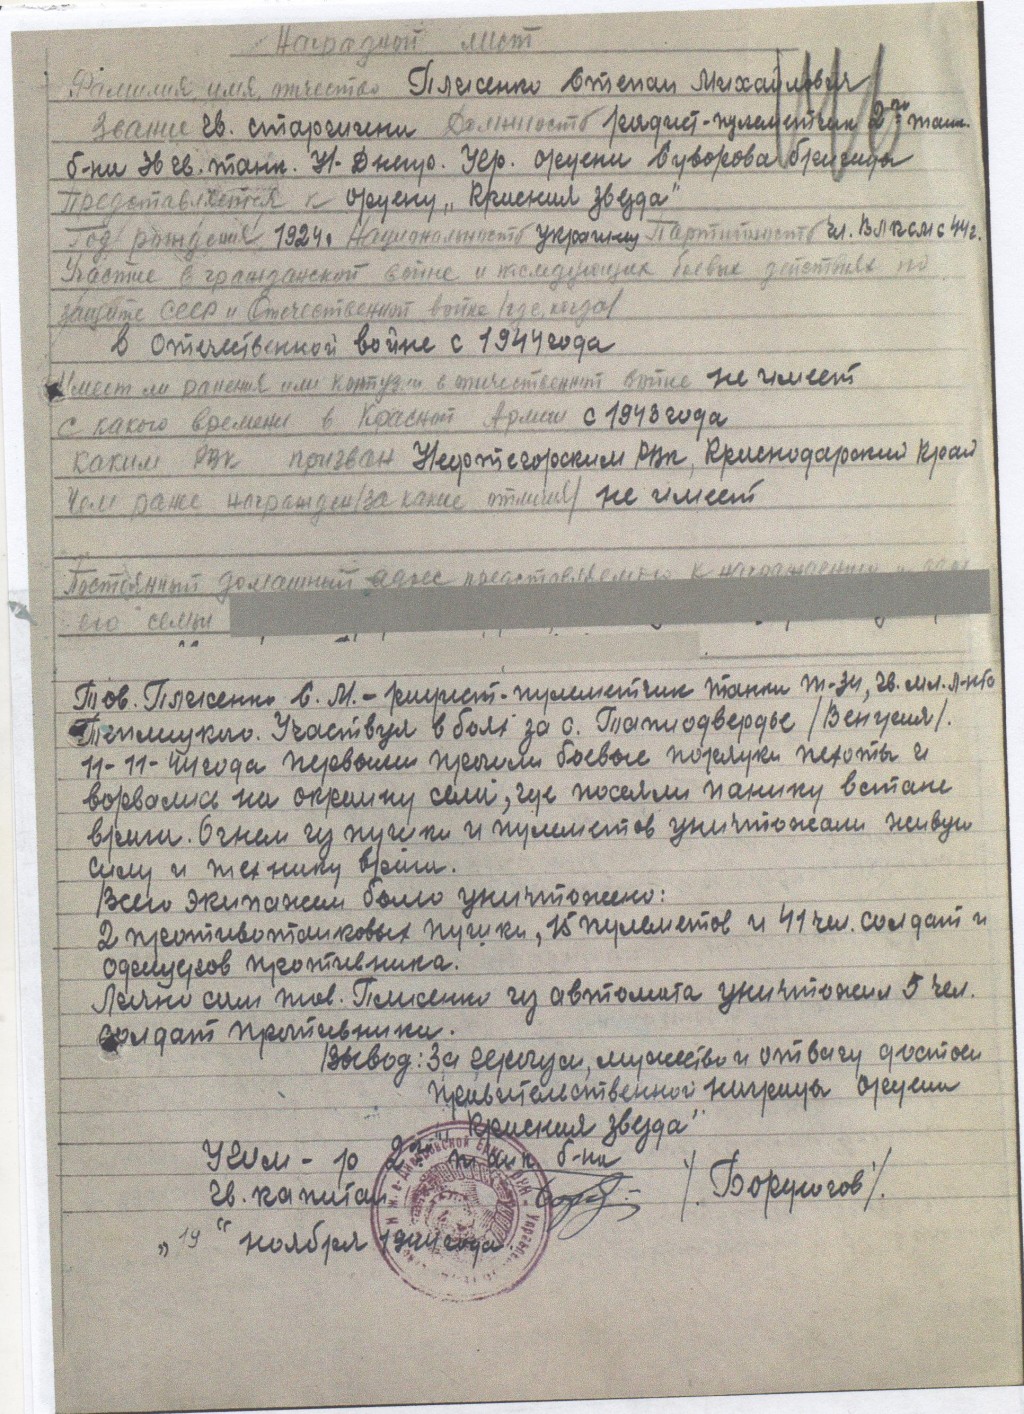 Наградной лист
Фамилия, имя, отчество Пляженко Степан Михайлович
Звание гв. старшина Должность радист-пулеметчик 2го танк.
б-на 36 гв. танк. Н-Днепр. Кр. ордена Суворова бригады
Представляется к ордену „Красная звезда"
Год рождения 1924г. Национальность украинец Партийность чл. ВЛКСМ с 44г.
Участие в гражданской войне и последующих боевых действиях по
защите СССР и Отечественной войне /где, когда/
В Отечественной войне с 1944 года
Имеет ли ранения или контузии в отечественной войне не имеет
С какого времени в Красной Армии с 1943 года
Каким РВК призван Нефтегорским РВК, Краснодарский Край
Чем ранее награжден /за какие отличия/ не имеет
Постоянный домашний адрес представляемого к награждению и адрес
его семьи
Тов. Пляженко С. М. - радист-пулеметчик танка Т-34, гв. мл. л-нта
Участвуя в боях за с. /Венгрия/.
11-11-44 года первыми прошли боевые порядки пехоты и
ворвались на окраину села, где посеяли панику в стане
врага. Огнем из пушки и пулеметов уничтожали живую
силу и технику врага.
Всего экипажем было уничтожено:
2 противотанковых пушки, 15 пулеметов и 41 чел. солдат и
офицеров противника.
Лично сам тов. Пляженко из автомата уничтожил 5 чел.
солдат противника.
Вывод: За героизм, мужество и отвагу достоин
правительственной награды ордена
„Красная звезда"
Ком-р 2го танк б-на
гв. капитан /Бордюгов/.
„19" ноября 1944 года